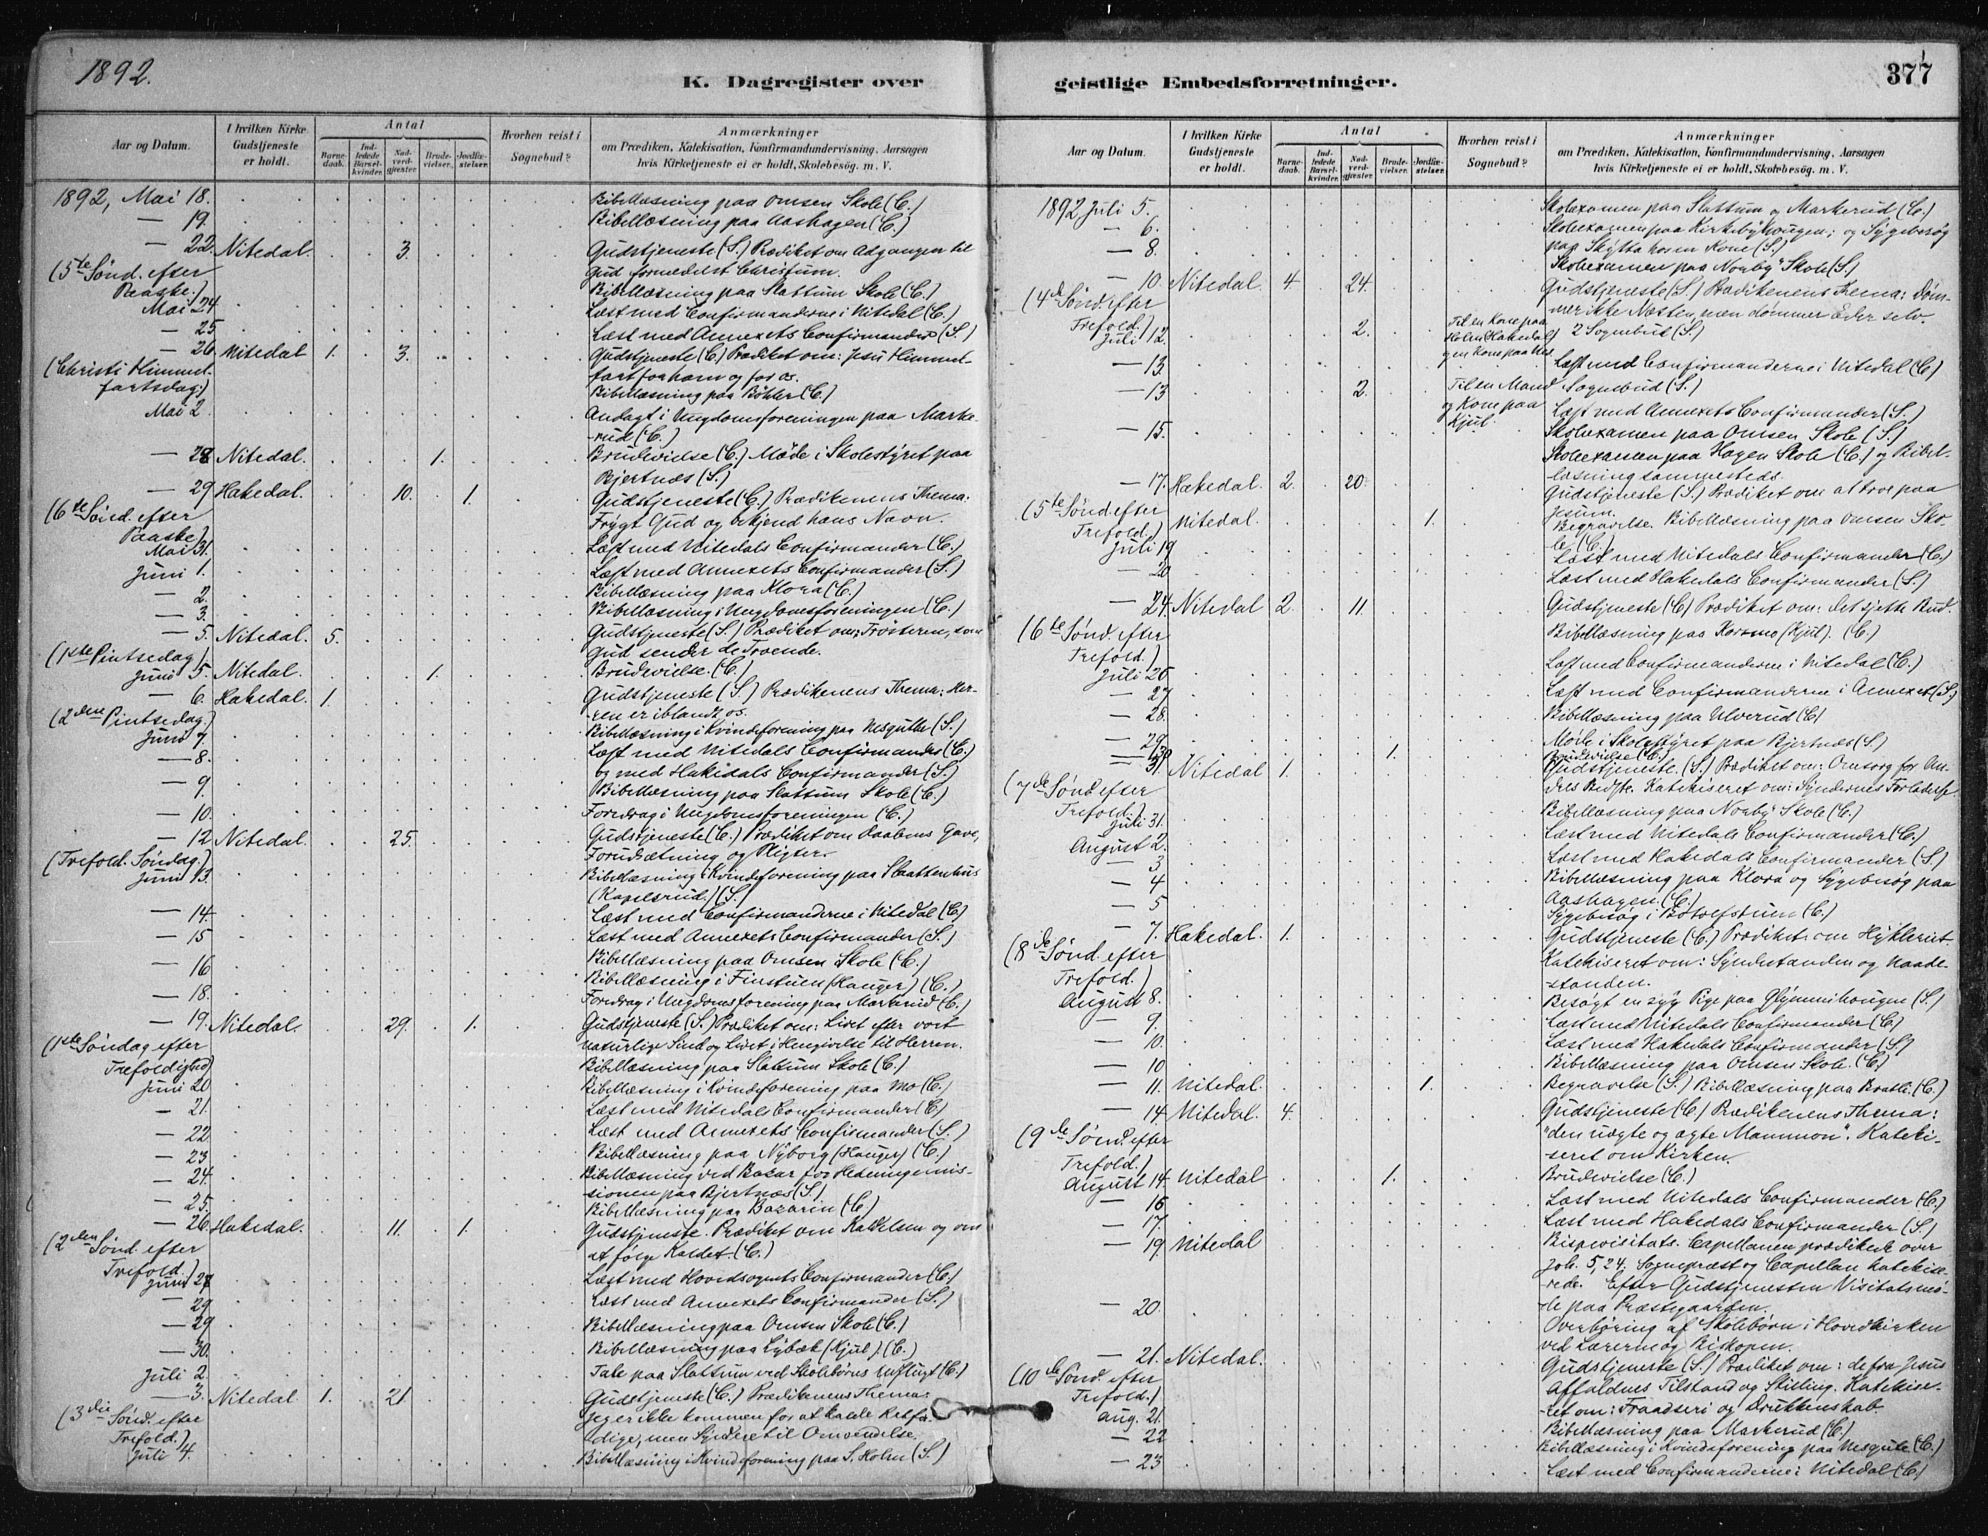 1892.
K. Dagregister over
Aar og Datum.
I hvilken Kirke Gudstjeneste er holdt.
Antal
Barnedaab.
Indledede Barselkvinder.
Nadverdgjæster.
Brudevielser.
Jordfæstelser.
Hvorhen reist i Sognebud?
Anmærkninger
om Prædiken, Katekisation, Konfirmandundervisning, Aarsagen
hvis Kirketjeneste ei er holdt, Skolebesøg. m. V.
1892, Mai 18. Bibellæsning paa Omsen Skole (C.)
— 19. Bibellæsning paa Aashagen (C.)
— 22. Nitedal. 3. Gudstjeneste (S.) Prædiket om Adgangen til
(5te Sønd. efter Paaske.) Gud formedelst Christum.
Bibellæsning paa Slattum Skole (C.)
Mai 24 Læst med Confirmanderne i Nitedal (C.)
— 25 Læst med Annexets Confirmander (S.)
— 26. Nitedal 1. 3. Gudstjeneste (C.) Prædiket om: Jesu Himmel-
(Christi Himmelfartsdag.) fart for ham og for os.
Bibellæsning paa Bøhler (C.)
Mai 2 Andagt i Ungdomsforeningen paa Marke-
-rud (C.)
— 28 Nitedal. 1. Brudevielse (C.) Møde i Skolestyret paa
Bjertnæs (S.)
— 29 Hakedal. 10. 1. Gudstjeneste (C.) Prædikenens Thema:
(6te Sønd. efter Paaske) Frygt Gud og erkjend hans Navn.
Mai 31. Læst med Nitedals Confirmander (C.)
Juni 1. Læst med Annexets Confirmander (S.)
— 2. Bibellæsning paa Klora (C.)
— 3. Bibellæsning i Ungdomsforeningen (C.)
— 5. Nitedal. 5. Gudstjeneste (S.) Prædiket om: Trøsteren, som
(1ste Pintsedag) Gud sender de Troende.
Juni 5. Nitedal. 1. Brudevielse. (C.)
— 6. Hakedal. 1. Gudstjeneste (S.) Prædikenens Thema: Her-
(2den Pintsedag.) ren er iblandt os.
Juni 7. Bibellæsning i Kvindeforening paa
Læst med Nitedals Confirmander (C.)
— 8. og med Hakedals Confirmander (S.)
— 9. Bibellæsning paa Slattum Skole (C.)
— 10. Foredrag i Ungdomsforeningen (C.)
— 12 Nitedal. 25. Gudstjeneste (C.) Prædiket om Daabens Gave,
(Trefold. Søndag.) Forudsætning og Pligter.
Juni 13. Bibellæsning i Kvindeforening paa Slaattenhus
(Kapelsrud.) (S.)
— 14. Læst med Confirmanderne i Nitedal (C.)
— 15 Læst med Annexets Confirmander (S.)
— 16 Bibellæsning paa Omsen Skole (C.)
Bibellæsning i Finstuen (Hauger) (C.)
— 18. Foredrag i Ungdomsforening paa Markerud (C.)
— 19. Nitedal. 29. 1. Gudstjeneste (S.) Prædiket om: Livet efter vort
(1ste Søndag efter Trefoldighed) naturlige Sind og Livet i Hengivelse til Herren.
Bibellæsning paa Slattum Skole (C.)
Juni 20 Bibellæsning i Kvindeforening paa Mo (C.)
— 21. Læst med Nitedals Confirmander (C.)
— 22 Læst med Annexets Confirmander (S.)
— 23 Bibellæsning paa Nyborg (Hauger) (C.)
— 24. Bibellæsning ved Bazar for Hedningemis-
sionen paa Bjertnæs (S.)
— 25. Bibellæsning paa Bazarin (C.)
— 26. Hakedal. 11. 1. Gudstjeneste. Prædiket om Kaldelsen og om
(2den Sønd. efter Trefold.) at følge Kaldet. (C.)
Juni 28 Læst med Hovedsognets Confirmander (C.)
— 29 Læst med Annexets Confirmander (S.)
— 29 Bibellæsning paa Omsen Skole (C.)
— 30. Bibellæsning paa Lybæk (Kjul). (C.)
Juli 2 Tale paa Slattum ved Skolebørns Udflugt (C.)
— 3. Nitedal 1. 21 Gudstjeneste (C.) Prædikenens Thema:
(3die Sønd. efter Trefold.) Jeg er ikke kommen for at kalde Retfær-
dige, men Syndere til Omvendelse.
Juli 4. Bibellæsning i Kvindeforening paa S. Holm (S.)
geistlige Embedsforretninger.
377
Aar og Datum.
I hvilken Kirke Gudstjeneste er holdt.
Antal
Barnedaab.
Indledede Barselkvinder.
Nadverdgjæster.
Brudevielser.
Jordfæstelser.
Hvorhen reist i Sognebud?
Anmærkninger
om Prædiken, Katekisation, Konfirmandundervisning, Aarsagen
hvis Kirketjeneste ei er holdt, Skolebesøg. m. V.
1892 Juli 5. Skolexamen paa Slattum og Markerud (C.)
— 6. Skolexamen paa Kirkebyhougen; og Sygebesøg
paa Skytta hos en Kone (S.)
— 8. Skolexamen paa Nordby Skole (S.)
— 10. Nitedal 4. 24. Gudstjeneste (S.) Prædikenens Thema: Døm-
(4de Sønd. efter Trefold.) mer ikke Næsten, men dømmer Eder selv.
Juli 12. 2. Til en Kone paa Holm (Hakedal) og en Kone paa Næs. 2 Sognebud (S.)
— 13. Læst med Confirmanderne i Nitedal (C.)
— 13 2. Til en Mand og Kone paa Kjul. Sognebud (S.)
Læst med Annexets Confirmander (S.)
— 15. Skolexamen paa Omsen Skole (S.)
Skolexamen paa Hagen Skole (C.) og Bibel-
læsning sammesteds.
— 17. Hakedal. 2. 20. Gudstjeneste (S.) Prædiket om at troe paa
(5te Sønd efter Trefold.) Jesum.
Nitedal. 1. Begravelse. Bibellæsning paa Omsen Sko-
le (C.)
Juli 19 Læst med Nitedals Confirmander (C.)
— 20 Læst med Hakedals Confirmander (S.)
— 24. Nitedal 2. 11. Gudstjeneste (C) Prædiket om: det sjette Bud.
(6te Sønd. efter Trefold.) Bibellæsning paa Korsmo (Kjul). (C.)
Juli 26 Læst med Confirmanderne i Nitedal (C.)
— 27 Læst med Confirmanderne i Annexet (S.)
— 28. Bibellæsning paa Ulverud (C)
— 29 Møde i Skolestyret paa Bjertnæs (S.)
— 30 1. Brudevielse (C.)
— 31. Nitedal 1. Gudstjeneste. (S.) Prædiket om: Omsorg for An-
(7de Sønd efter Trefold.) dres Bedste. Katekiseret om: Syndernes Forladelse.
Juli 31. Bibellæsning paa Nordby Skole (C.)
August 2. Læst med Nitedals Confirmander (C.)
— 3 Læst med Hakedals Confirmander (S.)
— 4 Bibellæsning paa Klora og Sygebesøg paa
Aashagen. (C.)
— 5 Sygebesøg i Botolfstuen (C.)
— 7. Hakedal. 1. Gudstjeneste (C.) Prædiket om Hykleriet
(8de Sønd. efter Trefold.) Katekiseret om: Syndestanden og Naade-
standen.
August 8. Besøgt en syg Pige paa Glymmihougen (S.)
— 9. Læst med Nitedals Confirmander (C)
— 10. Læst med Hakedals Confirmander (S.)
— 10 Bibellæsning paa Omsen Skole. (C.)
— 11. Nitedal. 1. Begravelse (S.) Bibellæsning paa Bratli (C.)
— 14. Nitedal. 4. Gudstjeneste (C.) Prædikenens Thema:
(9de Sønd. efter Trefold.) "den uægte og ægte Mammon". Kateki-
seret om Kirken.
August 14 Nitedal 1. Brudevielse (C.)
— 16 Læst med Nitedals Confirmander (C.)
— 17. Læst med Hakedals Confirmander (S.)
— 19 Nitedal Bispevisitats. Capellanen prædikede over
Joh. 5,24. Sognepræst og Capellan katekise-
rede. Efter Gudstjenesten Visitatsmø-
de paa Præstegaarden.
— 20. Overhøring af Skolebørn i Hovedkirken
ved Lærerne og Biskopen.
— 21. Nitedal. Gudstjeneste (S.) Prædiket om: de fra Jesus
(10de Sønd. efter Trefold.) Affaldnes Tilstand og Stilling. Katekise-
ret om: Fraadseri og Drukkenskab.
Aug. 21. Bibellæsning paa Markerud (C.)
— 22 Bibellæsning i Kvindeforening paa (C.)
— 23 Læst med Confirmanderne i Nitedal (C.)